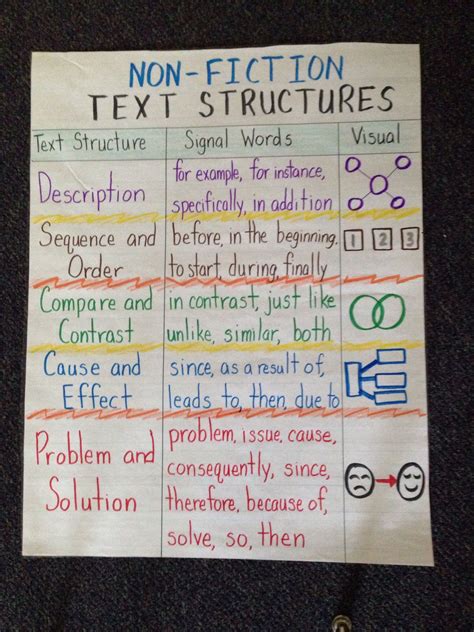 NON-FICTION
TEXT STRUCTURES
Text Structure Signal Words Visual
Description
for example, for instance,
specifically, in addition
Sequence and
Order
before, in the beginning,
to start, during, finally
1 2 3
Compare and
Contrast
in contrast, just like
unlike, similar, both
Cause and
Effect
since, as a result of,
leads to, then, due to
Problem and
Solution
problem, issue, cause,
consequently, since,
therefore, because of,
solve, so, then